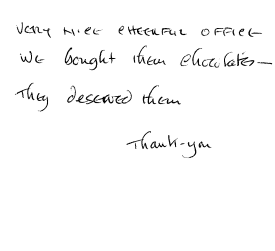 VERY NICE CHEERFUL OFFICE
WE bought them chocolates—
They deserved them
Thank-you